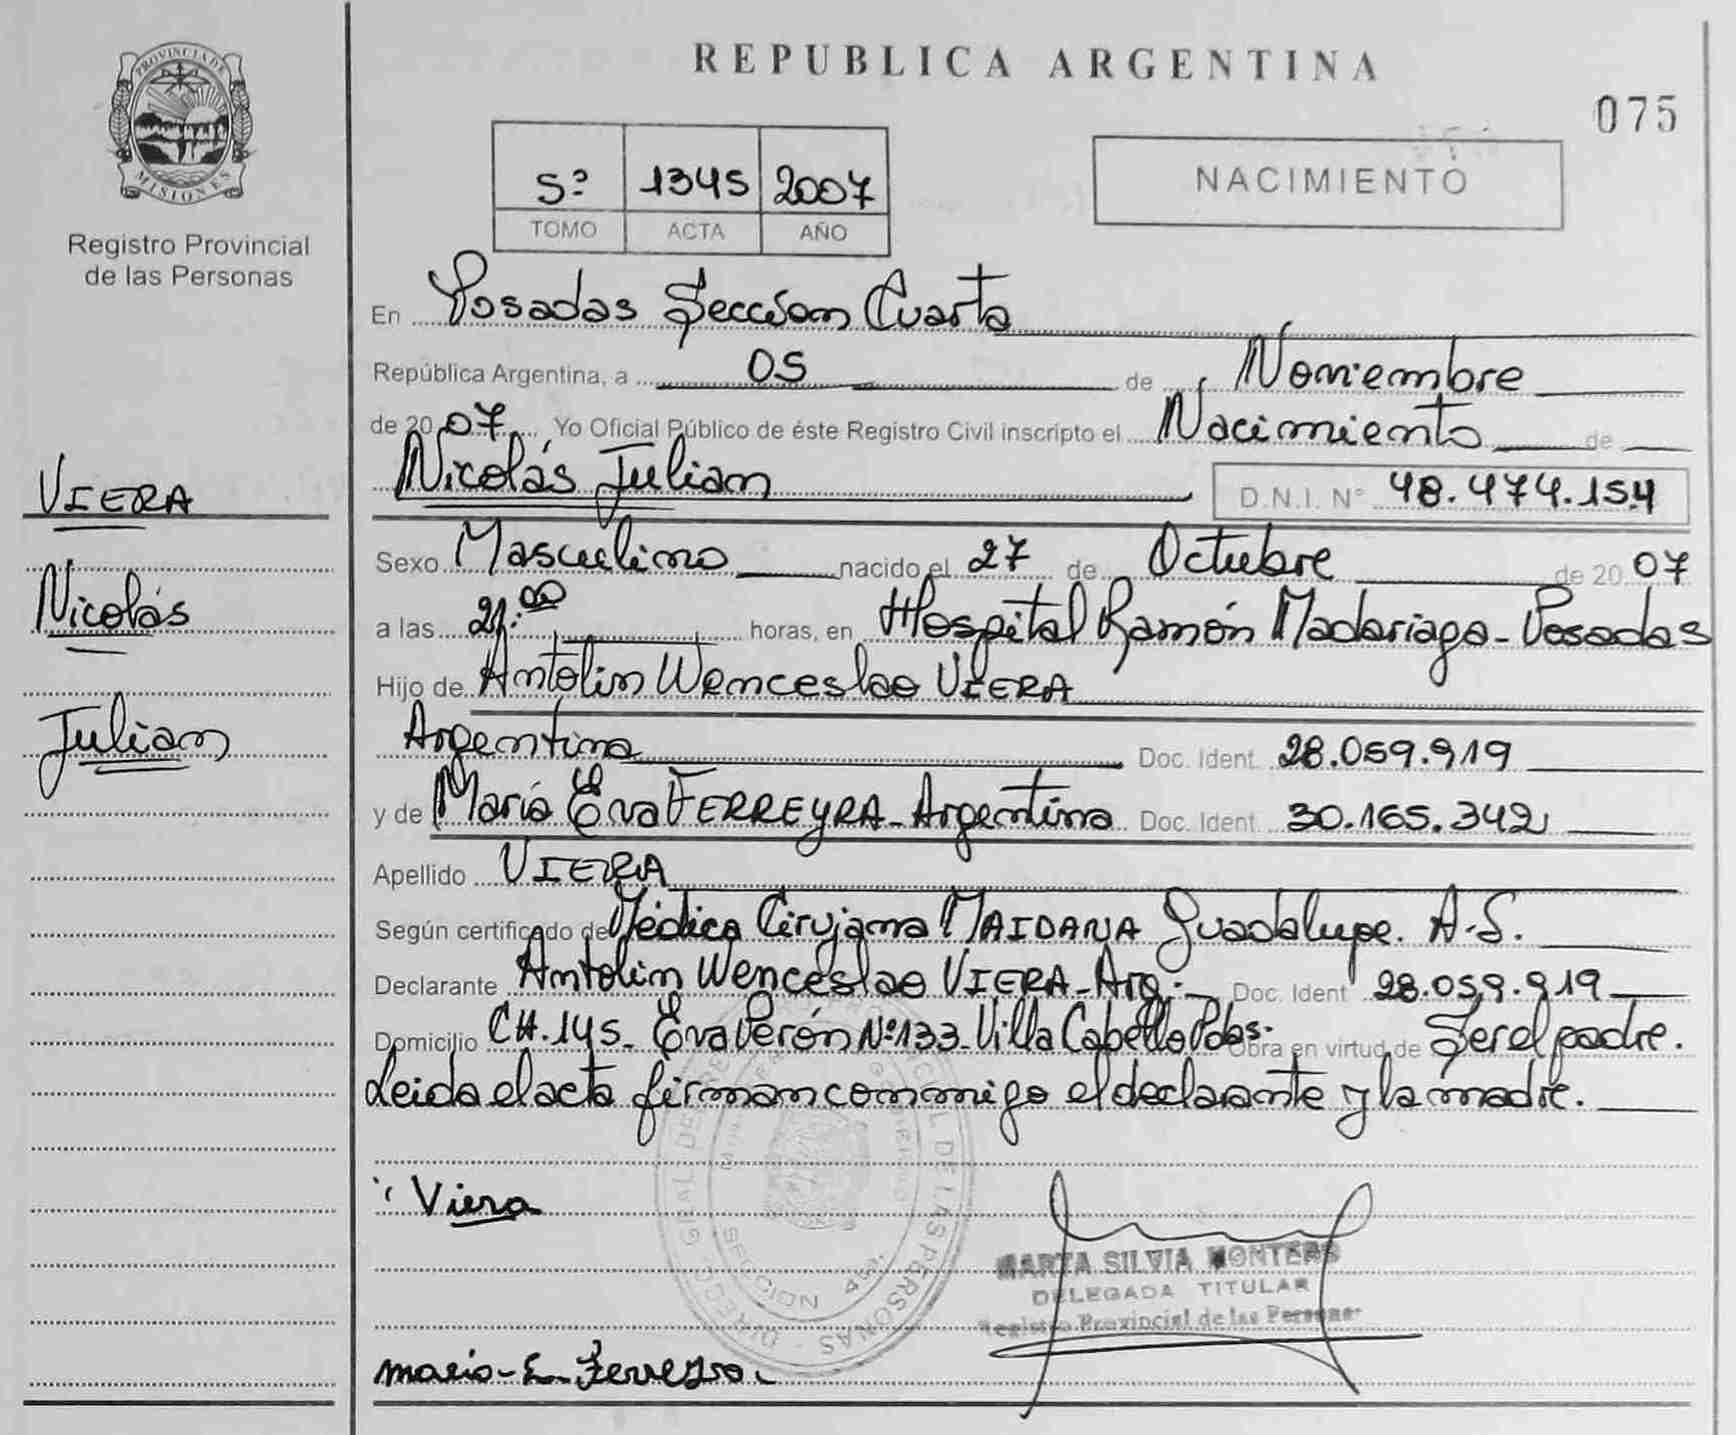 PROVINCIA DE
MISIONES
Registro Provincial
de las Personas
VIERA
Nicolás
Julian
REPUBLICA ARGENTINA
075
5º 1345 2007
TOMO ACTA AÑO
NACIMIENTO
En Posadas Sección Cuarta
República Argentina, a 05 de Noviembre
de 2007 Yo Oficial Público de éste Registro Civil inscripto el Nacimiento de
Nicolás Julian D.N.I. Nº 48.474.154
Sexo Masculino nacido el 27 de Octubre de 2007
a las 21:00 horas, en Hospital Ramón Madariaga - Posadas
Hijo de Antolin Wenceslao VIERA
Argentina Doc. Ident 28.059.919
y de María Eva FERREYRA - Argentina Doc. Ident 30.165.342
Apellido VIERA
Según certificado de Médica Cirujana MAIDANA Guadalupe. A.S.
Declarante Antolin Wenceslao VIERA - Arg. - Doc. Ident 28.059.919
Domicilio CH. 145 - Eva Perón Nº 133 - Villa Cabello Pdas. Obra en virtud de Ser el padre.
Leida el acta firman conmigo el declarante y la madre.
Viera
MARTA SILVIA MONTERO
DELEGADA TITULAR
Registro Provincial de las Personas
DIRECC. GRAL DE LAS PERSONAS
maria - E. Ferreyra.